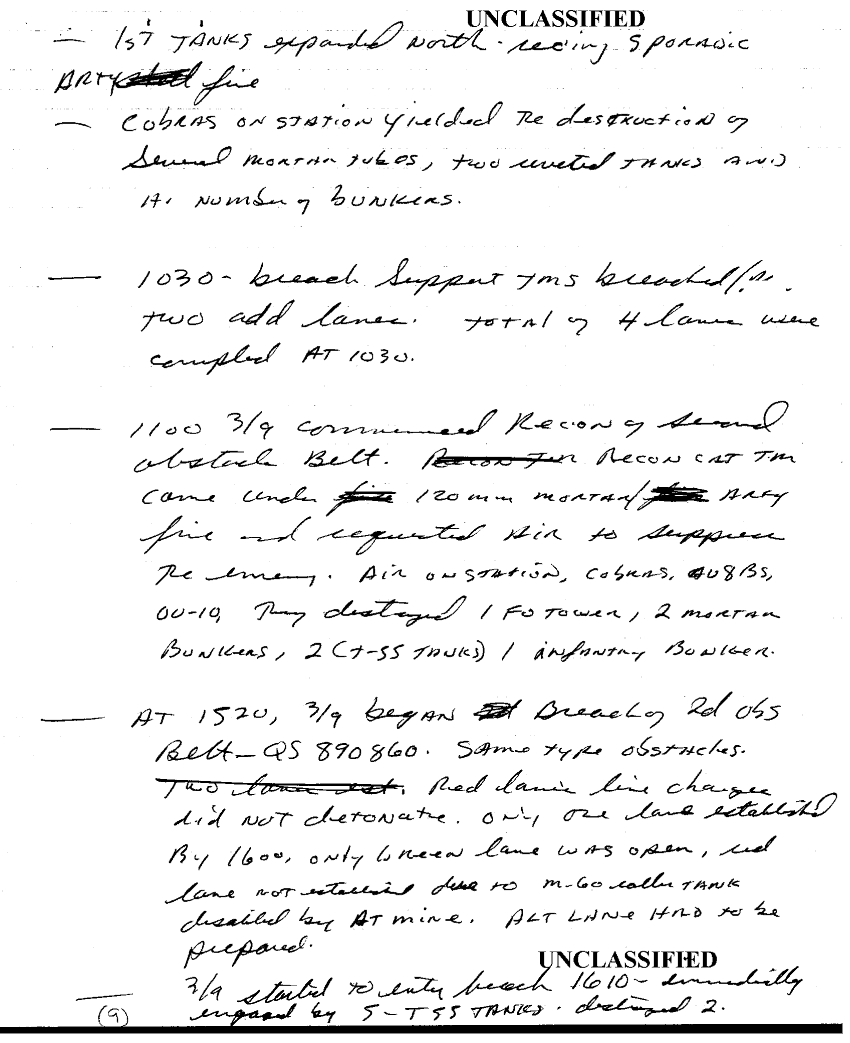 UNCLASSIFIED
— 1st TANKS expanded North - recving SPORADIC
ARTY fire
— CobRAS ON STATION yielded The destRUCTION of
Several MORTAR tubes, two reveted TANKS AND
A number of bUNKERS.
— 1030 - breach Support tms breached
two add lanes. total of 4 lanes were
compled AT 1030.
— 1100 3/9 commenced Recon of second
obstacle Belt. RECON CAT TM
came under 120mm MORTAR/ ARTY
fire and requested Air to suppress
The enemy. AIR ON STATION, CobRAS, AV8BS,
OV-10, They destroyed 1 FO TOWER, 2 MORTAR
BUNKERS, 2 (T-55 TANKS) 1 infantry BUNKER.
— AT 1520, 3/9 began Breach of 2d obs
Belt - QS 890860. SAME type obstacles.
Two lanes est. Red lane line charges
did NOT detonate. only one lane established
By 1600, only Green lane was open, red
lane not established due to M-60 roller TANK
disabled by AT mine. ALT LANE HAD to be
prepared.
UNCLASSIFIED
— 3/9 started to enter breach 1610 - immediately
engaged by 5 - T55 TANKS. destroyed 2.
(9)